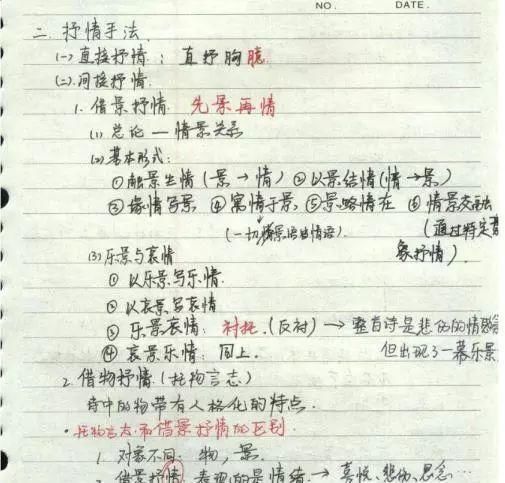 NO. DATE.
二. 抒情手法
(一) 直接抒情: 直抒胸臆
(二) 间接抒情.
1. 借景抒情. 先景再情
(1) 总论 — 情景关系
(2) 基本形式:
①触景生情(景→情) ②以景结情(情→景)
③缘情写景 ④寓情于景 ⑤景略情在 ⑥情景交融
(一切景语皆情语) (通过特定意
象抒情).
(3) 乐景与哀情
① 以乐景写乐情.
② 以哀景写哀情
③ 乐景哀情: 衬托.(反衬) → 整首诗是悲伤的情感
④ 哀景乐情: 同上. 但出现了一幕乐景
2. 借物抒情(托物言志)
诗中的物带有人格化的特点.
·托物言志和借景抒情的区别
1. 对象不同. 物, 景.
2. 借景抒情 表现的是情绪 → 喜悦、悲伤、思念…